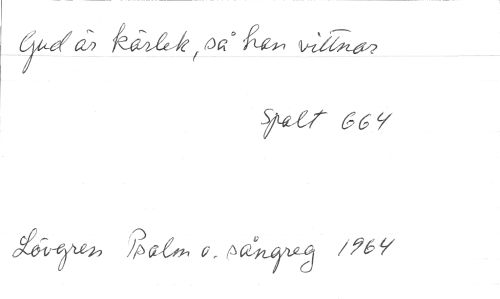 Gud är kärlek, så han vittnar
Spalt 664
Lövgren Psalm o. sångreg 1964